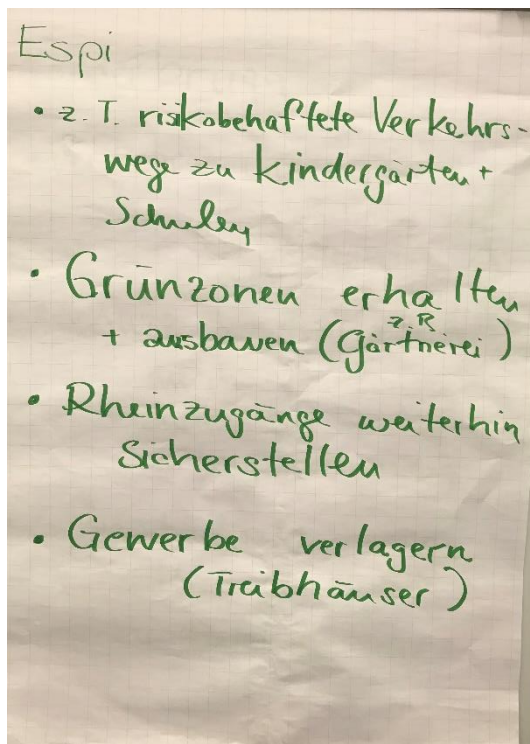 Espi
• z. T. riskobehaftete Verkehrs-
wege zu Kindergärten +
Schulen
• Grünzonen erhalten
z.B
+ ausbauen (Gärtnerei)
• Rheinzugänge weiterhin
Sicherstellen
• Gewerbe verlagern
(Treibhäuser)